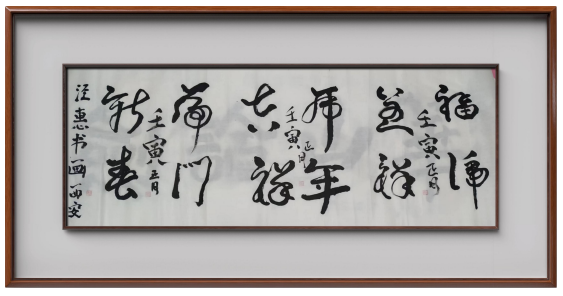 福虎
壬寅正月
呈祥
虎年
壬寅正月
吉祥
虎门
壬寅正月
新春
泾惠书画西安